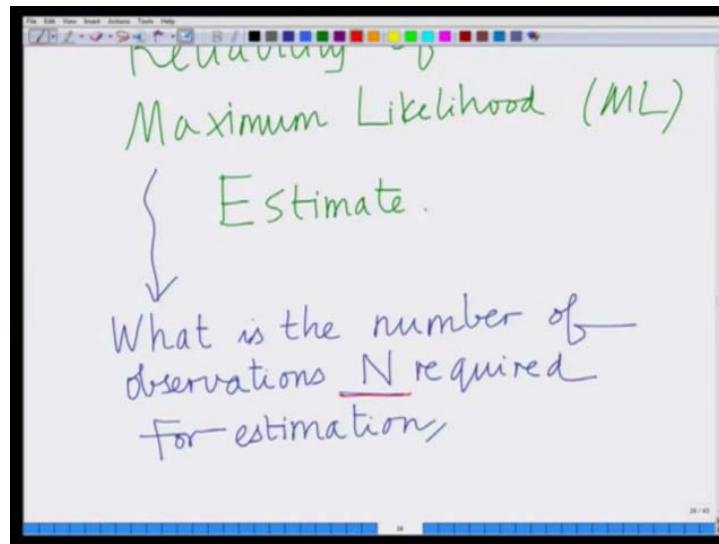 File Edit View Insert Actions Tools Help
Reliability of
Maximum Likelihood (ML)
Estimate.
What is the number of
observations N required
for estimation,